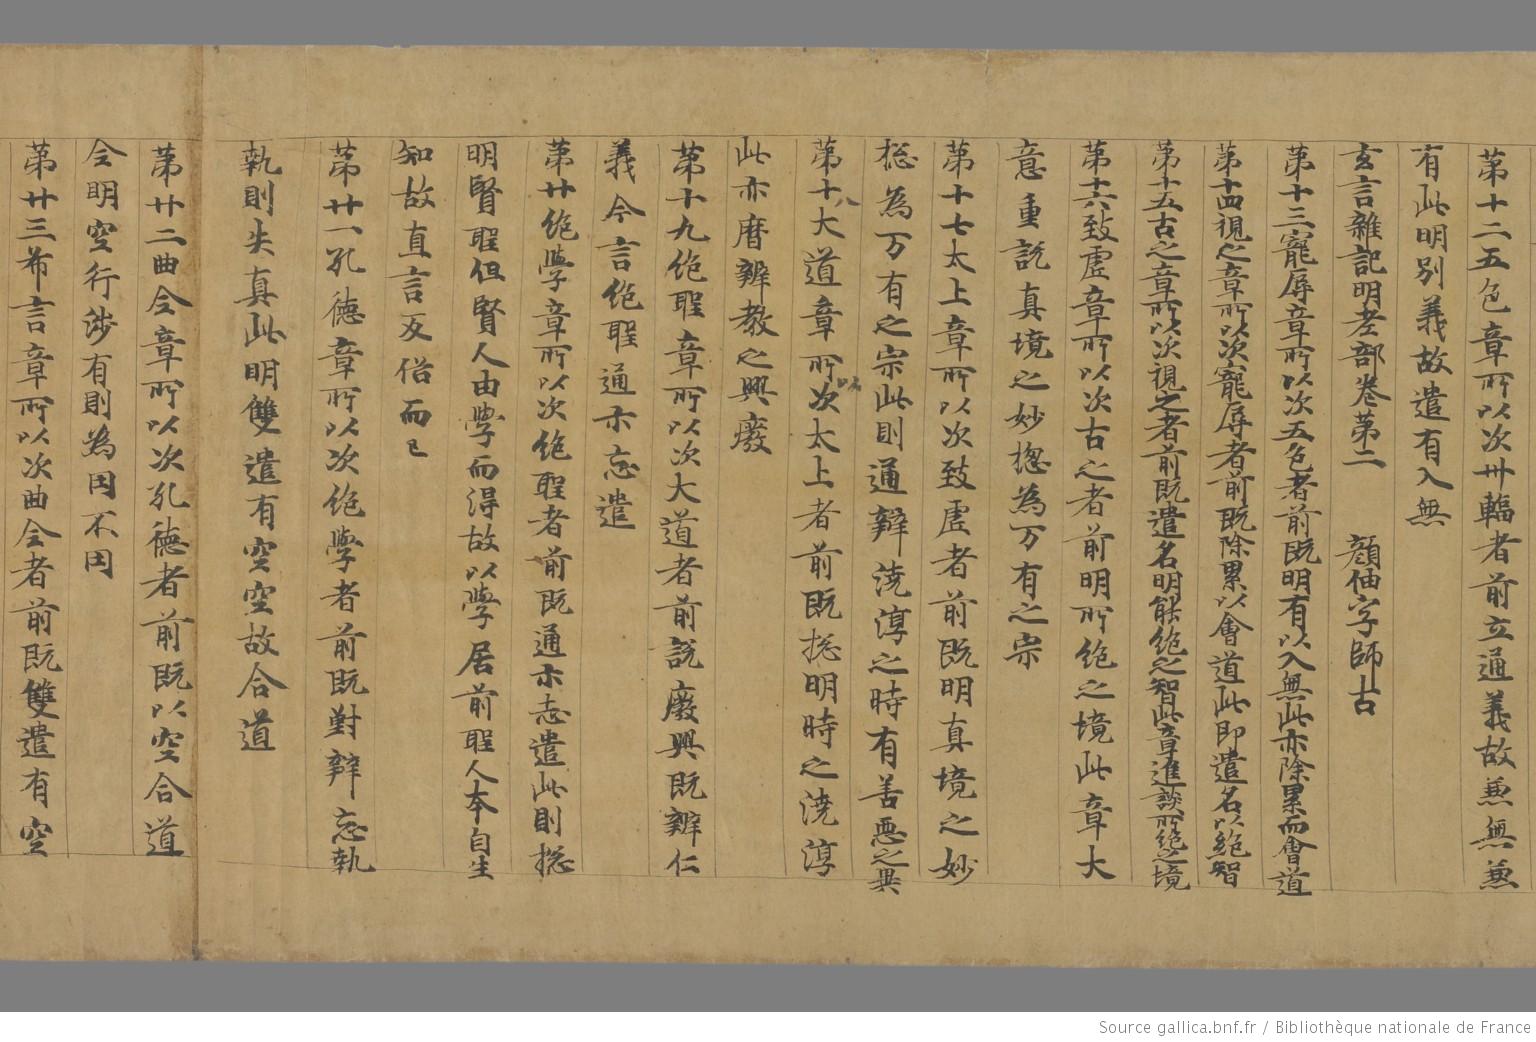 第十二五色章所以次卅輻者前立通義故兼無兼
有此明別義故遣有入無
玄言雜記明老部卷第二 顏伷字師古
第十三寵辱章所以次五色者前既明有以入無此亦除累而會道
第十四視之章所以次寵辱者前既除累以會道此即遣名以絕智
第十五古之章所以次視之者前既遣名明能絕之智此章進談所絕之境
第十六致虛章所以次古之者前明所絕之境此章大
意重說真境之妙惣為万有之宗
第十七太上章所以次致虛者前既明真境之妙
捴為万有之宗此則通辯澆淳之時有善惡之異
第十八大道章所以次太上者前既捴明時之澆淳
此亦曆辨教之興廢
第十九絕聖章所以次大道者前說廢興既辨仁
義今言絕聖通亦忘遣
第廿絕學章所以次絕聖者前既通亦忘遣此則捴
明賢聖但賢人由學而得故以學居前聖人本自生
知故直言反俗而已
第廿一孔德章所以次絕學者前既對辯忘執
執則失真此明雙遣有空空故合道
第廿二曲全章所以次孔德者前既以空合道
全明空行涉有則為因不因
第廿三希言章所以次曲全者前既雙遣有空
Source gallica.bnf.fr / Bibliothèque nationale de France